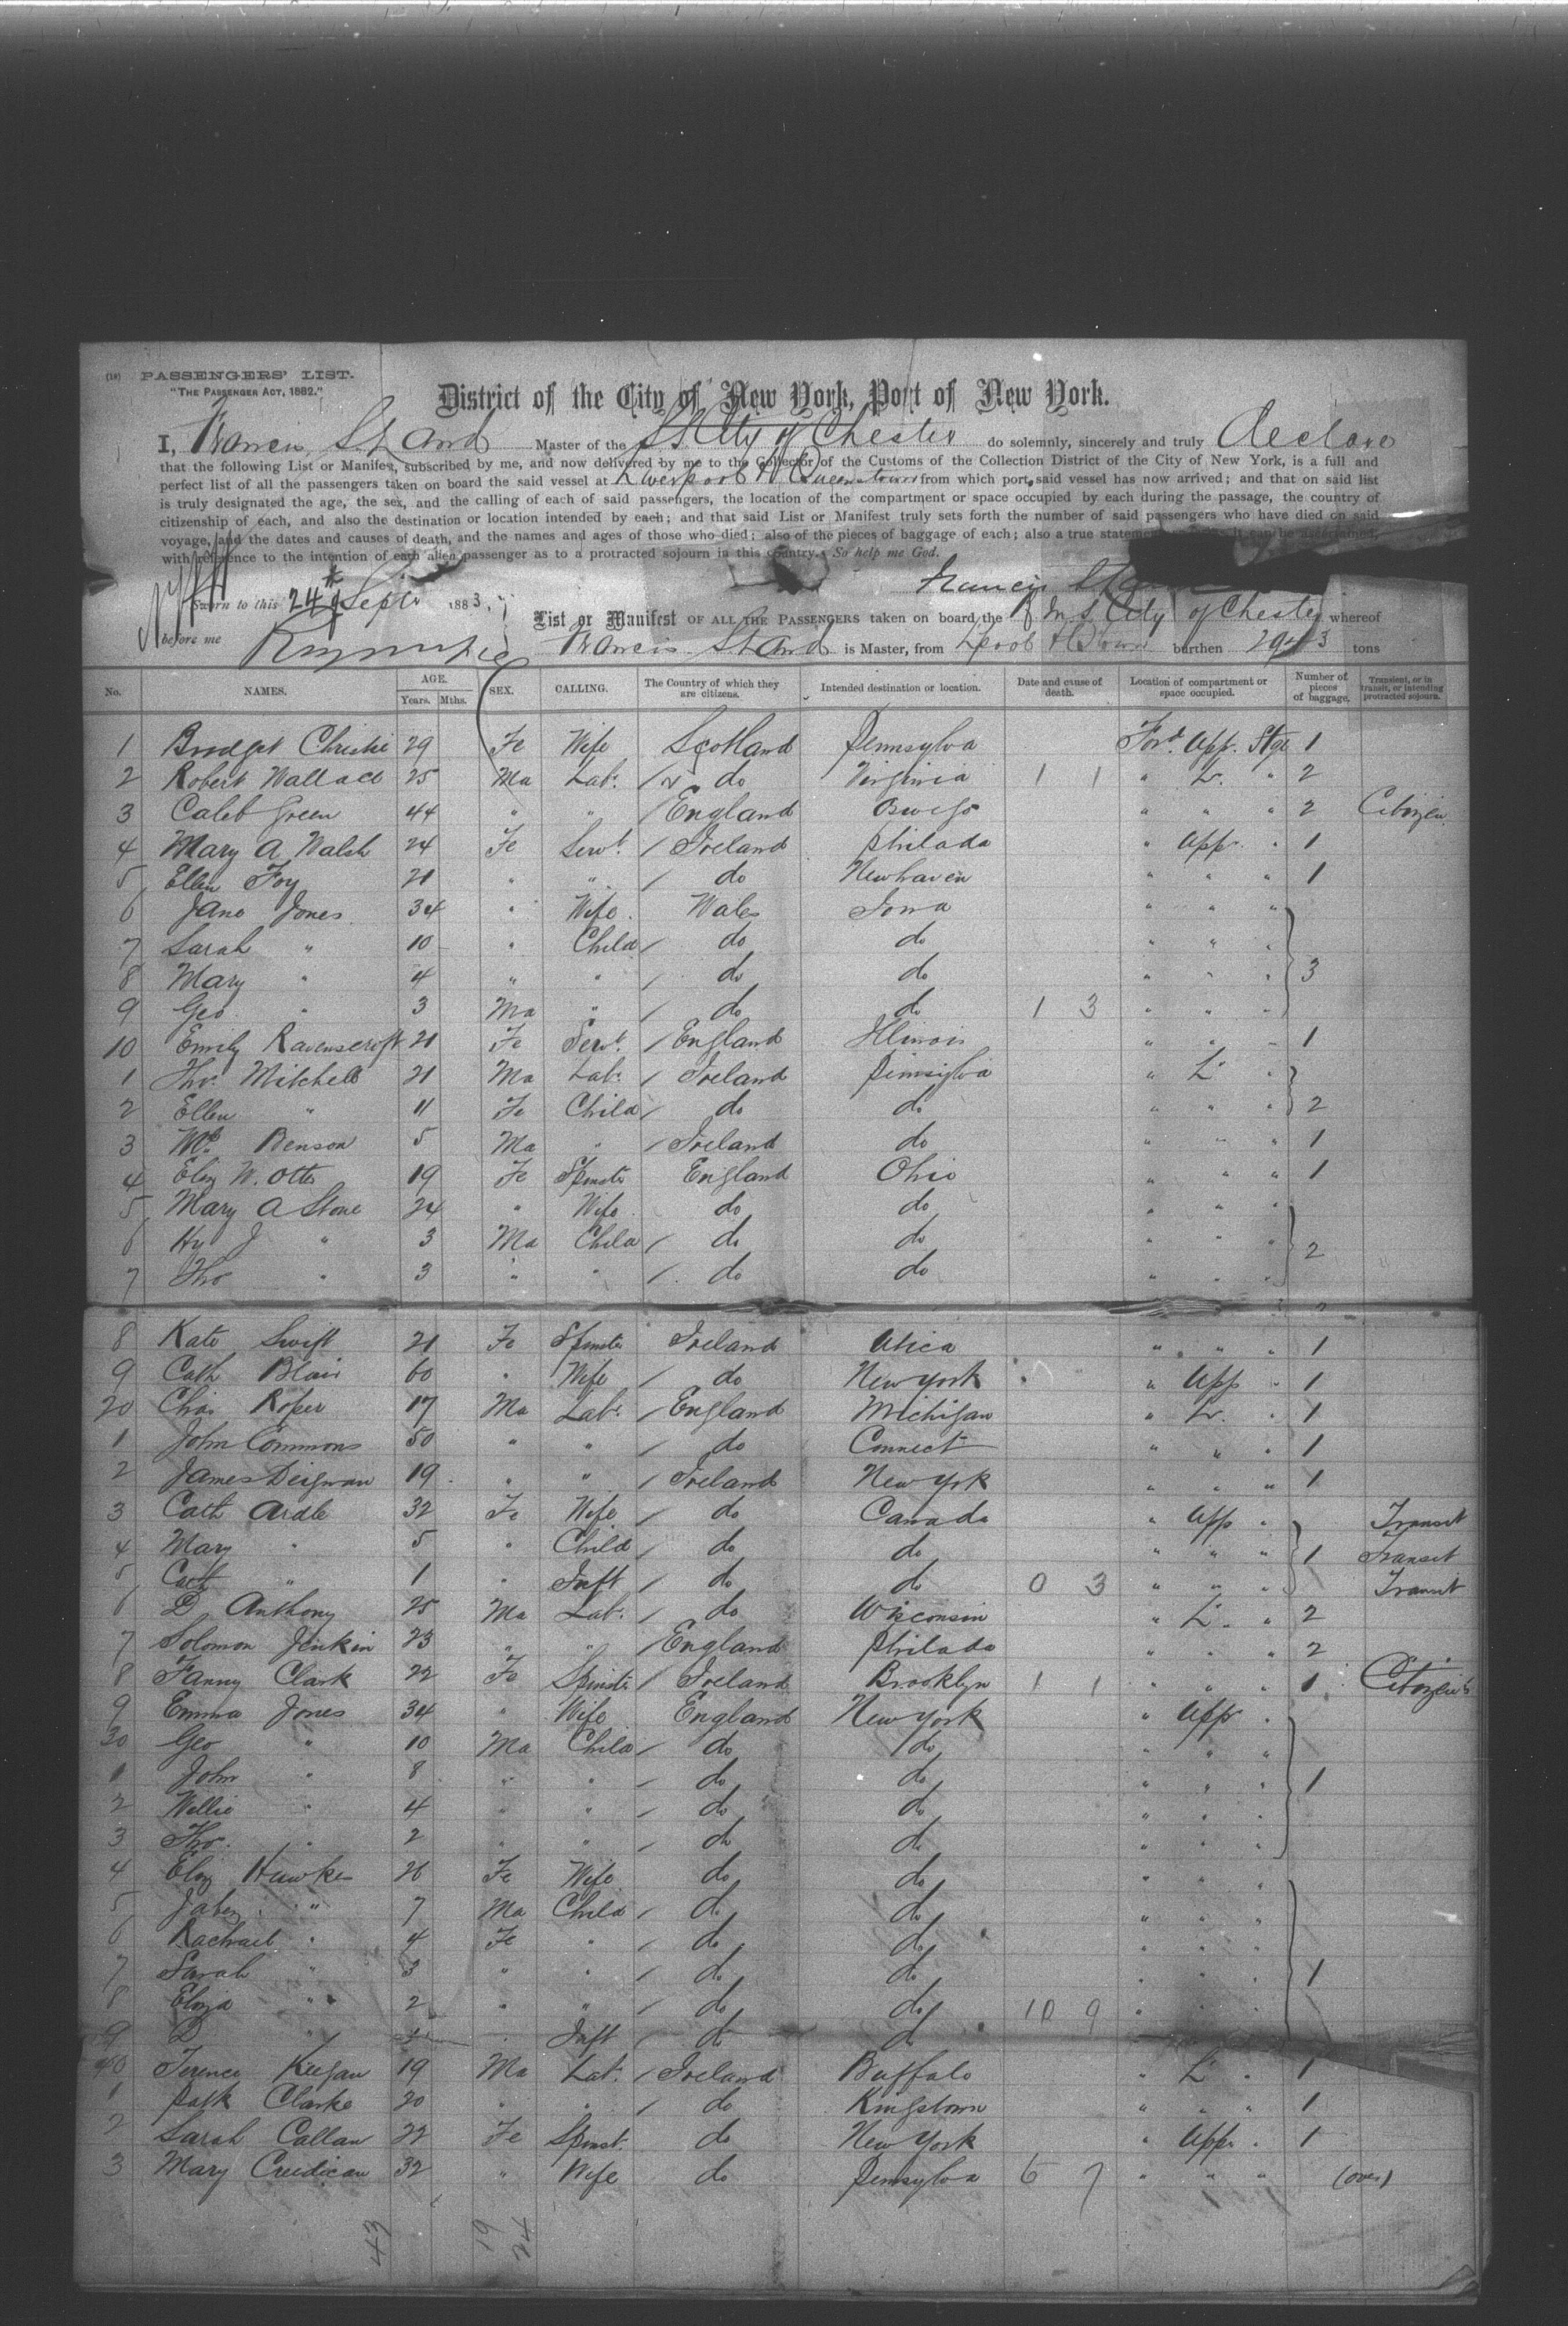 (18) PASSENGERS' LIST.
"THE PASSENGER ACT, 1882."
District of the City of New York, Port of New York.
I, Francis S. Land Master of the SS City of Chester do solemnly, sincerely and truly declare
that the following List or Manifest, subscribed by me, and now delivered by me to the Collector of the Customs of the Collection District of the City of New York, is a full and
perfect list of all the passengers taken on board the said vessel at Liverpool & Queenstown from which port said vessel has now arrived; and that on said list
is truly designated the age, the sex, and the calling of each of said passengers, the location of the compartment or space occupied by each during the passage, the country of
citizenship of each, and also the destination or location intended by each; and that said List or Manifest truly sets forth the number of said passengers who have died on said
voyage, and the dates and causes of death, and the names and ages of those who died; also of the pieces of baggage of each; also a true statement it can be ascertained,
with reference to the intention of each alien passenger as to a protracted sojourn in this country. So help me God.
Francis S
Sworn to this 24th Septr 1883,
before me
List or Manifest OF ALL THE PASSENGERS taken on board the City of Chester whereof
Francis S. Land is Master, from Lpool & QTown burthen tons
No. NAMES. AGE. Years. Mths. SEX. CALLING. The Country of which they are citizens. Intended destination or location. Date and cause of death. Location of compartment or space occupied. Number of pieces of baggage. Transient, or in transit, or intending protracted sojourn.
1 Bridget Christie 29 Fe Wife Scotland Pennsylva For'd Upp. Stge 1
2 Robert Wallace 25 Ma Labr / do Virginia 1 1 " Lr. " 2
3 Caleb Green 44 " " / England Oswego " " " 2 Citizen
4 Mary A Walsh 24 Fe Servt / Ireland Philada " Upp. " 1
5 Ellen Foy 21 " " / do Newhaven " " " 1
6 Jane Jones 34 " Wife Wales Iowa " " "
7 Sarah " 10 " Child / do do " " "
8 Mary " 4 " " / do do " " " 3
9 Geo " 3 Ma " / do do 1 3 " " "
10 Emily Ravenscroft 21 Fe Servt / England Illinois " " " 1
1 Thos Mitchell 21 Ma Labr / Ireland Pennsylva " Lr "
2 Ellen " 11 Fe Child / do do " " " 2
3 Wm Benson 5 Ma " / Ireland do " " " 1
4 Eliz W. Otto 19 Fe Spinstr England Ohio " " " 1
5 Mary A Stone 24 " Wife do do " " "
6 Hy J " 3 Ma Child / do do " " " 2
7 Tho " 3 " " / do do " " "
8 Kate Swift 21 Fe Spinster Ireland Utica " " " 1
9 Cath Blair 60 " Wife / do New York " Upp " 1
20 Chas Roper 17 Ma Labr / England Michigan " Lr. " 1
1 John Commons 50 " " / do Connect " " " 1
2 James Deignan 19 " " / Ireland New York " " " 1
3 Cath Ardle 32 Fe Wife / do Canada " Upp " Transit
4 Mary " 5 " Child / do do " " " 1 Transit
5 Cath " 1 " Inft / do do 0 3 " " " Transit
6 D Anthony 25 Ma Labr / do Wisconsin " Lr. " 2
7 Solomon Jenkin 23 " " / England Philada " " " 2
8 Fanny Clark 22 Fe Spinstr / Ireland Brooklyn 1 1 " " " 1 Citizen
9 Emma Jones 34 " Wife England New York " Upp "
30 Geo " 10 Ma Child / do do " " "
1 John " 8 " " / do do " " " 1
2 Willie " 4 " " / do do " " "
3 Tho. " 2 " " / do do " " "
4 Eliz Hawke 26 Fe Wife do do " " "
5 Jabez " 7 Ma Child / do do " " "
6 Rachael " 4 Fe " / do do " " "
7 Sarah " 3 " " / do do " " " 1
8 Eliza " 2 " " / do do 10 9 " " "
9 D " " Inft / do do
40 Terence Keegan 19 Ma Labr / Ireland Buffalo " Lr " 1
1 Patk Clarke 20 " " / do Kingstown " " " 1
2 Sarah Callan 22 Fe Spinst. do New York " Upp. " 1
3 Mary Creedican 32 " Wife do Pensylva 6 7 " " " (over)
43 19 24